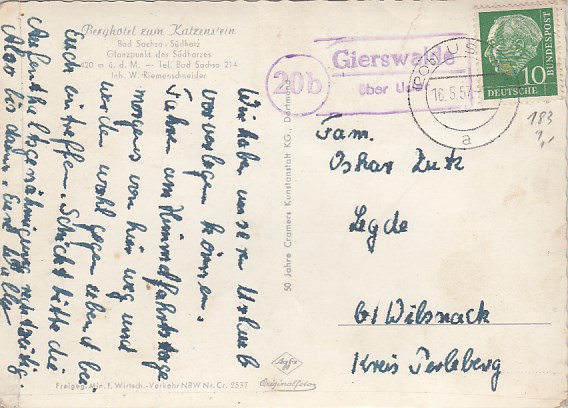 Berghotel zum Katzenstein
Bad Sachsa/Südharz
Glanzpunkt des Südharzes
420 m ü. d. M. — Tel. Bad Sachsa 214
Inh. W. Riemenschneider
Wir haben unsern Urlaub
vorverlegen können.
Fahren am Himmelfahrtstage
morgens von hier weg und
werden wohl gegen abend bei
Euch eintreffen. Schickt bitte die
Aufenthaltsgenehmigung rechtzeitig.
Also bis dann. Eure
50 Jahre Cramers Kunstanstalt KG., Dortmund
Freigeg. Min. f. Wirtsch. - Verkehr NRW Nr. Cr. 2557
Agfa
Originalfoto
20b
Gierswalde
über Us
USL
16.5.57
a
10
DEUTSCHE
BUNDESPOST
183
1,-
Fam.
Oskar Zutz
Legde
b/ Wilsnack
Kreis Perleberg